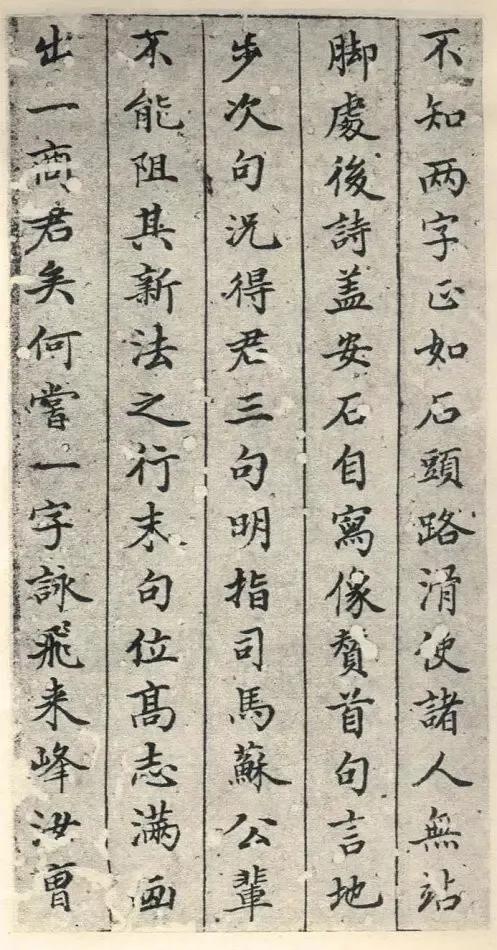 不知两字正如石頭路滑使諸人無站
脚處後詩盖安石自寫像贊首句言地
步次句况得君三句明指司馬蘇公輩
不能阻其新法之行末句位高志满画
出一商君矣何嘗一字詠飛来峰汝曹